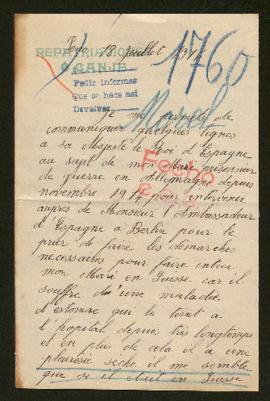 REPATRIACION
O CANJE
Pedir informes
que se hace así
Devolver
1760
Juillot
Je me permets de
communiquer quelques lignes
a sa Majesté le Roi d'Espagne
au sujet de mon Mari prisonnier
de guerre en Allemagne depuis
novembre 1917 pour intervenir
aupres de Monsieur l'Ambassadeur
d'Espagne a Berlin pour le
prier de faire les demarches
necessaires pour faire entrer
mon Mari en Suisse car il
souffre d'une maladie
d'estomac qui la tout a
l'hopital depuis tres longtemps
et en plus de cela il a une
pleuresie sèche il me semble
que si il etait en Suisse